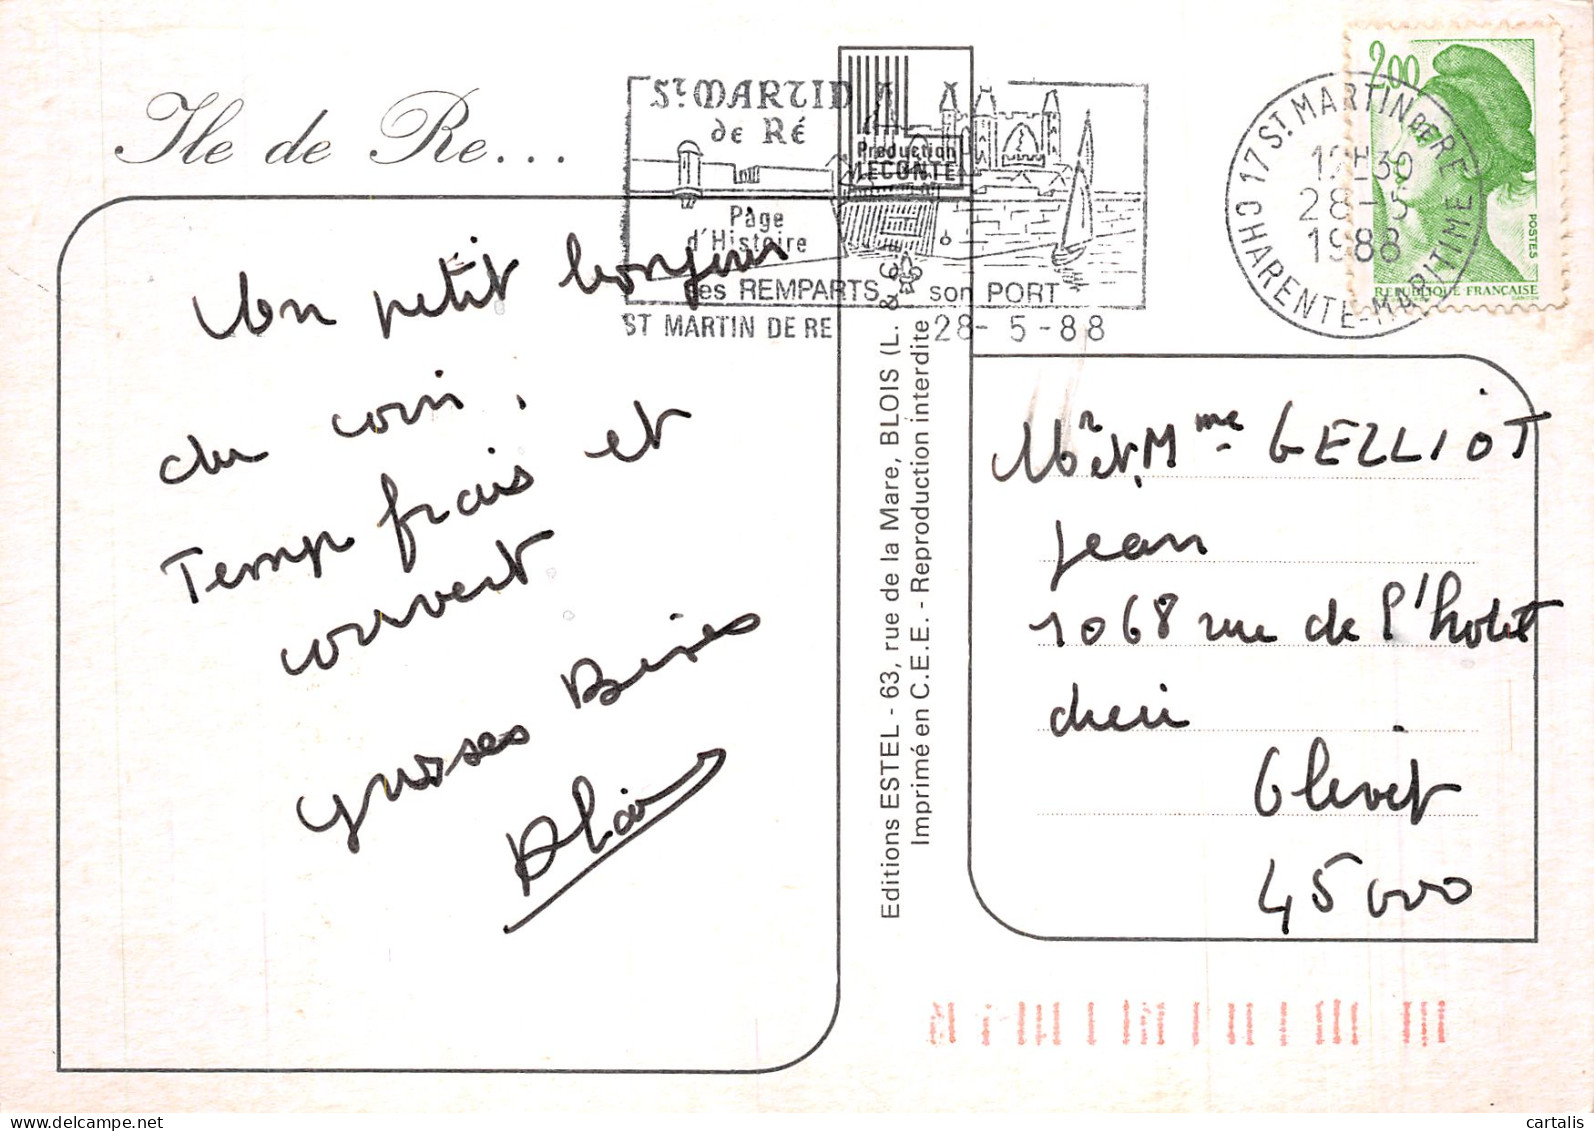 Ile de Re...
St MARTIN
de Ré
Page
d'Histoire
ses REMPARTS son PORT
ST MARTIN DE RE 28-5-88
Production
LECONTE
17 ST. MARTIN DE RE
12H30
28-5
1988
CHARENTE-MARITIME
2,00
POSTES
REPUBLIQUE FRANÇAISE
GANDON
Un petit bonjour
du coin.
Temps frais et
couvert
Grosses Bises
Alain
Editions ESTEL - 63, rue de la Mare, BLOIS (L. & C.)
Imprimé en C.E.E. - Reproduction interdite
Mr et Mme GELLIOT
Jean
1068 rue de l'hotet
cheri
Olivet
45000
cartalis